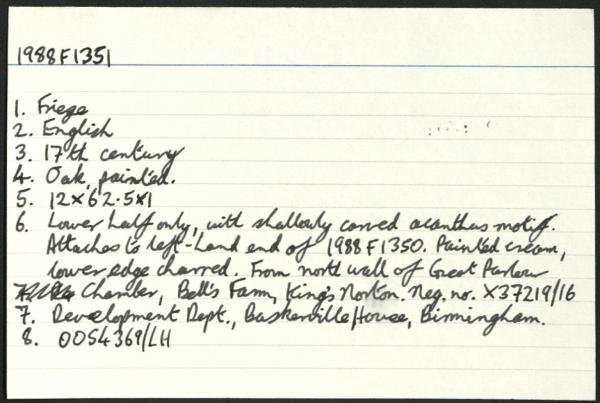 1988F1351
1. Frieze
2. English
3. 17th century
4. Oak, painted.
5. 12x62.5x1
6. Lower half only, with shallowly carved acanthus motif.
Attaches to left-hand end of 1988F1350. Painted cream,
lower edge charred. From north wall of Great Parlour
Chamber, Bell's Farm, King's Norton. Neg. no. X37219/16
7. Development Dept., Baskerville House, Birmingham.
8. OOS4369/LH